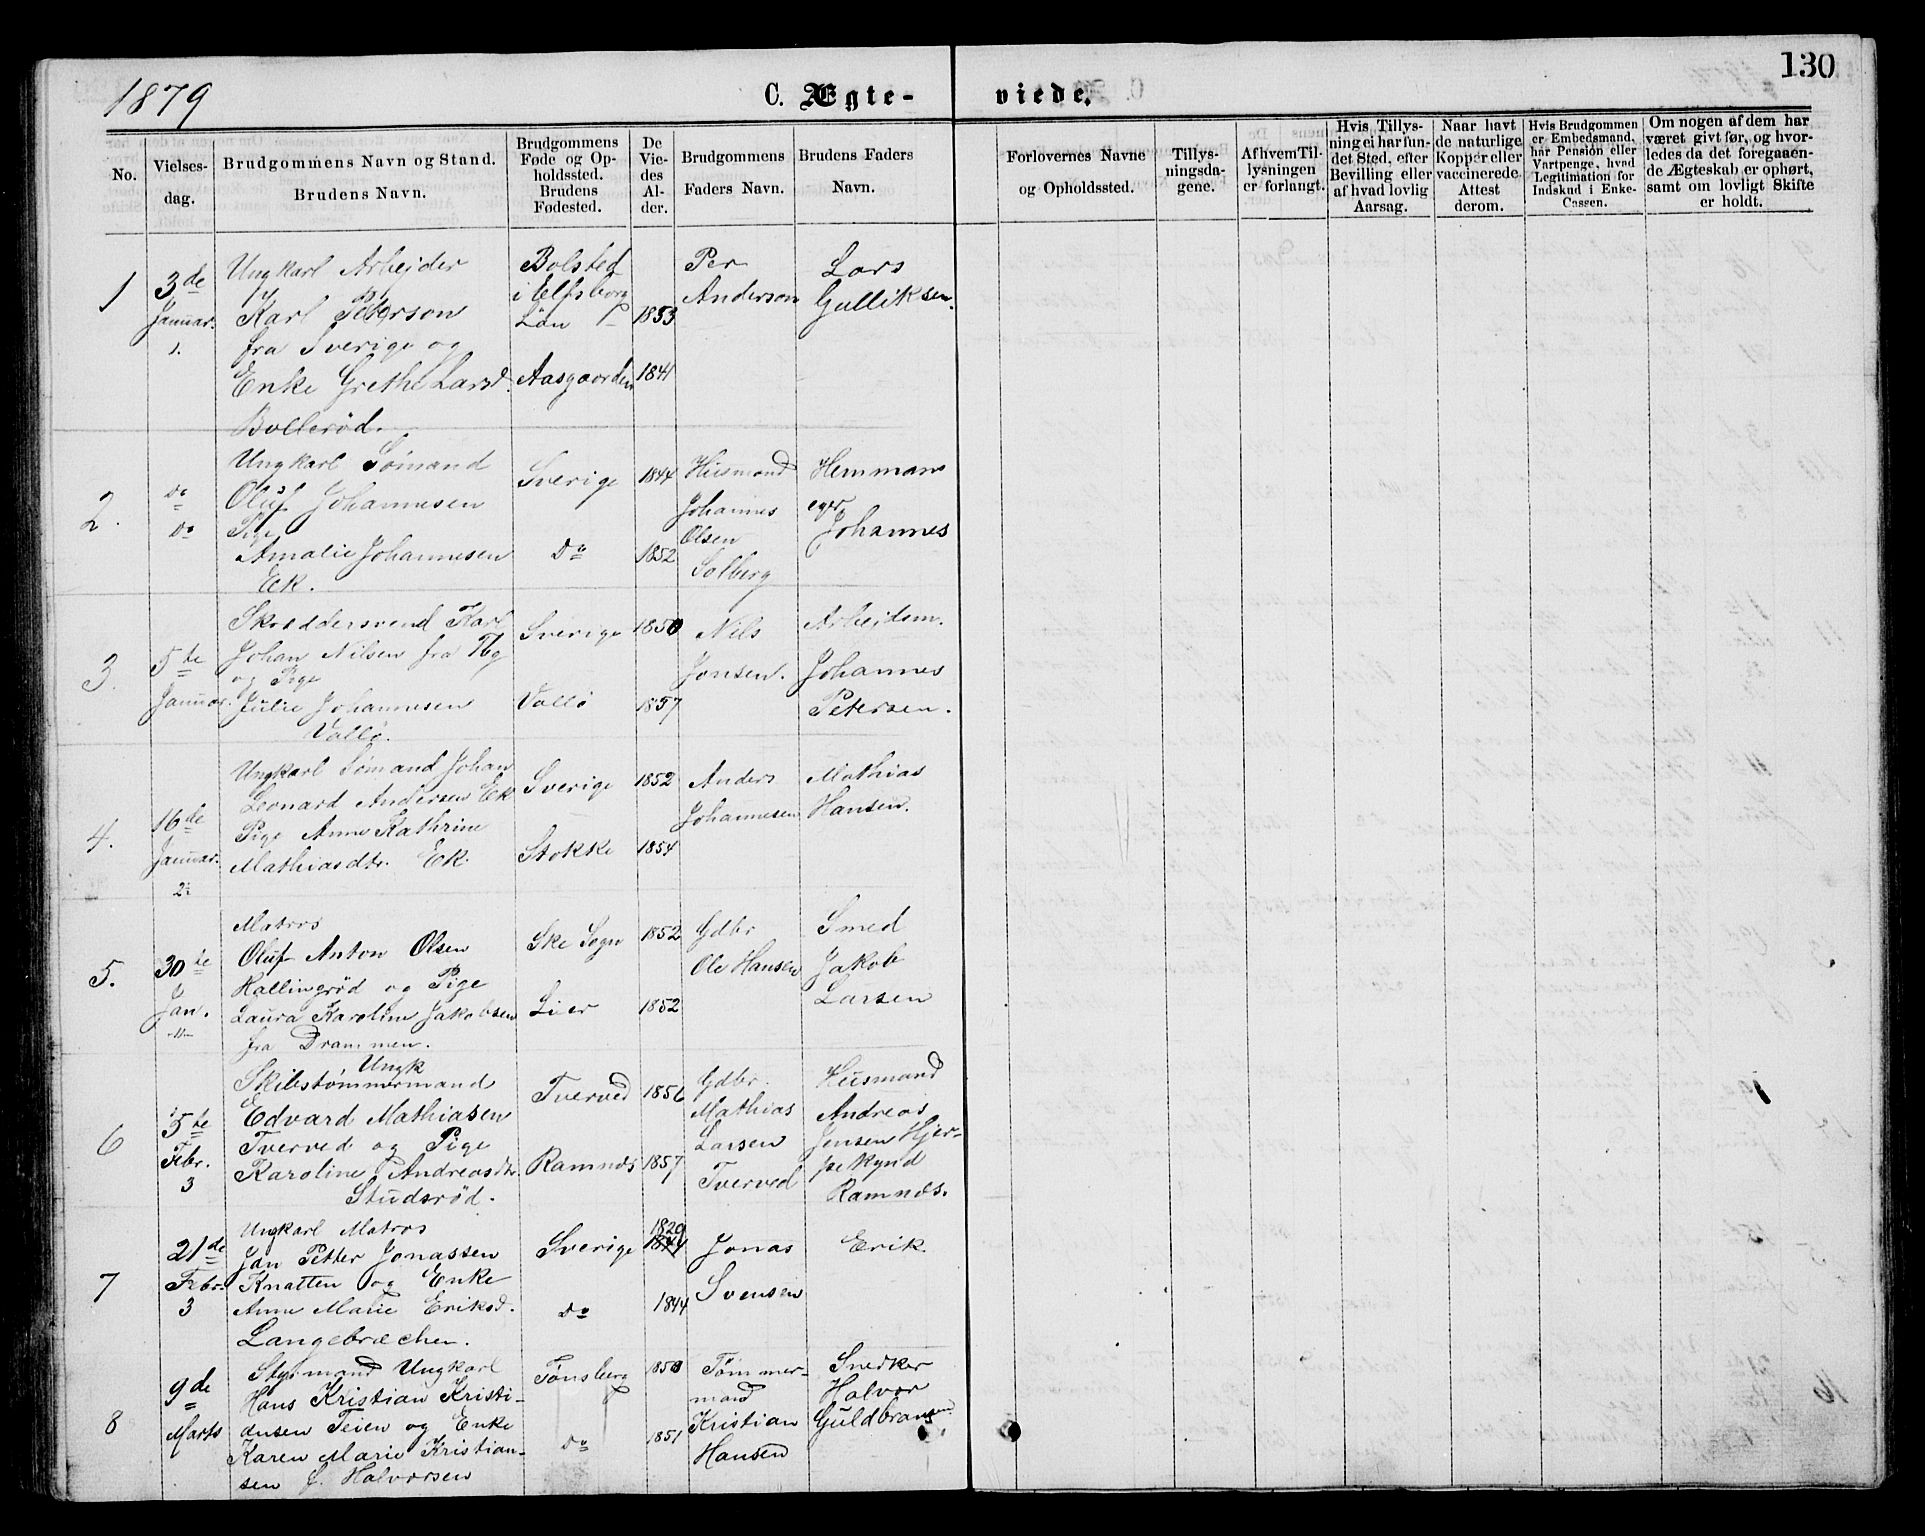 1879
C. Ægte-
viede.
130
No.
Vielses-
dag.
Brudgommens Navn og Stand.
Brudens Navn.
Brudgommens
Føde og Op-
holdssted.
Brudens
Fødested.
De
Vie-
des
Al-
der.
Brudgommens
Faders Navn.
Brudens Faders
Navn.
Forlovernes Navne
og Opholdssted.
Tillys-
ningsda-
gene.
Af hvem Til-
lysningen
er forlangt.
Hvis Tillys-
ning ei har fun-
det Sted, efter
Bevilling eller
af hvad lovlig
Aarsag.
Naar havt
de naturlige
Kopper eller
vaccinerede.
Attest
derom.
Hvis Brudgommen
er Embedsmand,
har Pension eller
Vartpenge, hvad
Legitimation for
Indskud i Enke-
Cassen.
Om nogen af dem har
været givt før, og hvor-
ledes da det foregaaen-
de Ægteskab er ophørt,
samt om lovligt Skifte
er holdt.
1
3de
Januar.
1.
Ungkarl Arbejder
Karl Peterson
fra Sverige og
Enke Grethe Larsd.
Bollerød.
Bolsted
i Elfsborg
Län
Aasgaarden
1853
1841
Per
Anderson
Lars
Gulliksen.
2.
do
do
Ungkarl Sømand
Oluf Johannesen
Pige
Amalie Johannesen
Ek.
Sverige
Do
1844
1852
Husmand
Johannes
Olsen
Solberg
Hemmans
eger
Johannes
3.
5te
Januar.
Skræddersvend Karl
Johan Nilsen fra Tbg
og Pige
Julie Johannesen
Vallø.
Sverige
Vallø
1850
1857
Nils
Jonsen.
Arbejdsm.
Johannes
Petersen.
4.
16de
Januar.
2.
Ungkarl Sømand Johan
Leonard Andersen Ek
Pige Anne Kathrine
Mathiasdtr. Ek.
Sverige
Stokke
1852
1854
Anders
Johannesen
Mathias
Hansen.
5.
30te
Jan.
-"-
Matros
Oluf Anton Olsen
Rallingrød og Pige
Laura Karoline Jakobsen
fra Drammen.
Ske Sogn
Lier
1852
1852
Gdbr
Ole Hansen
Smed
Jakob
Larsen
6
5te
Febr.
3
Ungk
Skibstømmermand
Edvard Mathiasen
Tverved og Pige
Karoline Andreasdtr
Studsrød.
Tverved
Ramnæs
1856
1857
Gdbr.
Mathias
Larsen
Tverved
Husmand
Andreas
Jensen Hjer-
pekynd
Ramnæs.
7
21de
Febr.
3
Ungkarl Matros
Jan Petter Jonassen
Knatten og Enke
Anne Marie Eriksd.
Langebræchen.
Sverige
Do
1829
1844
1844
Jonas
Svensen
Erik.
8
9de
Marts
Styrmand Ungkarl
Hans Kristian Kristi-
ansen Teien og Enke
Karen Marie Kristian-
sen f. Halvorsen
Tønsberg
Do
1850
1851
Tømmer-
mand
Kristian
Hansen
Snedker
Halvor
Guldbransen